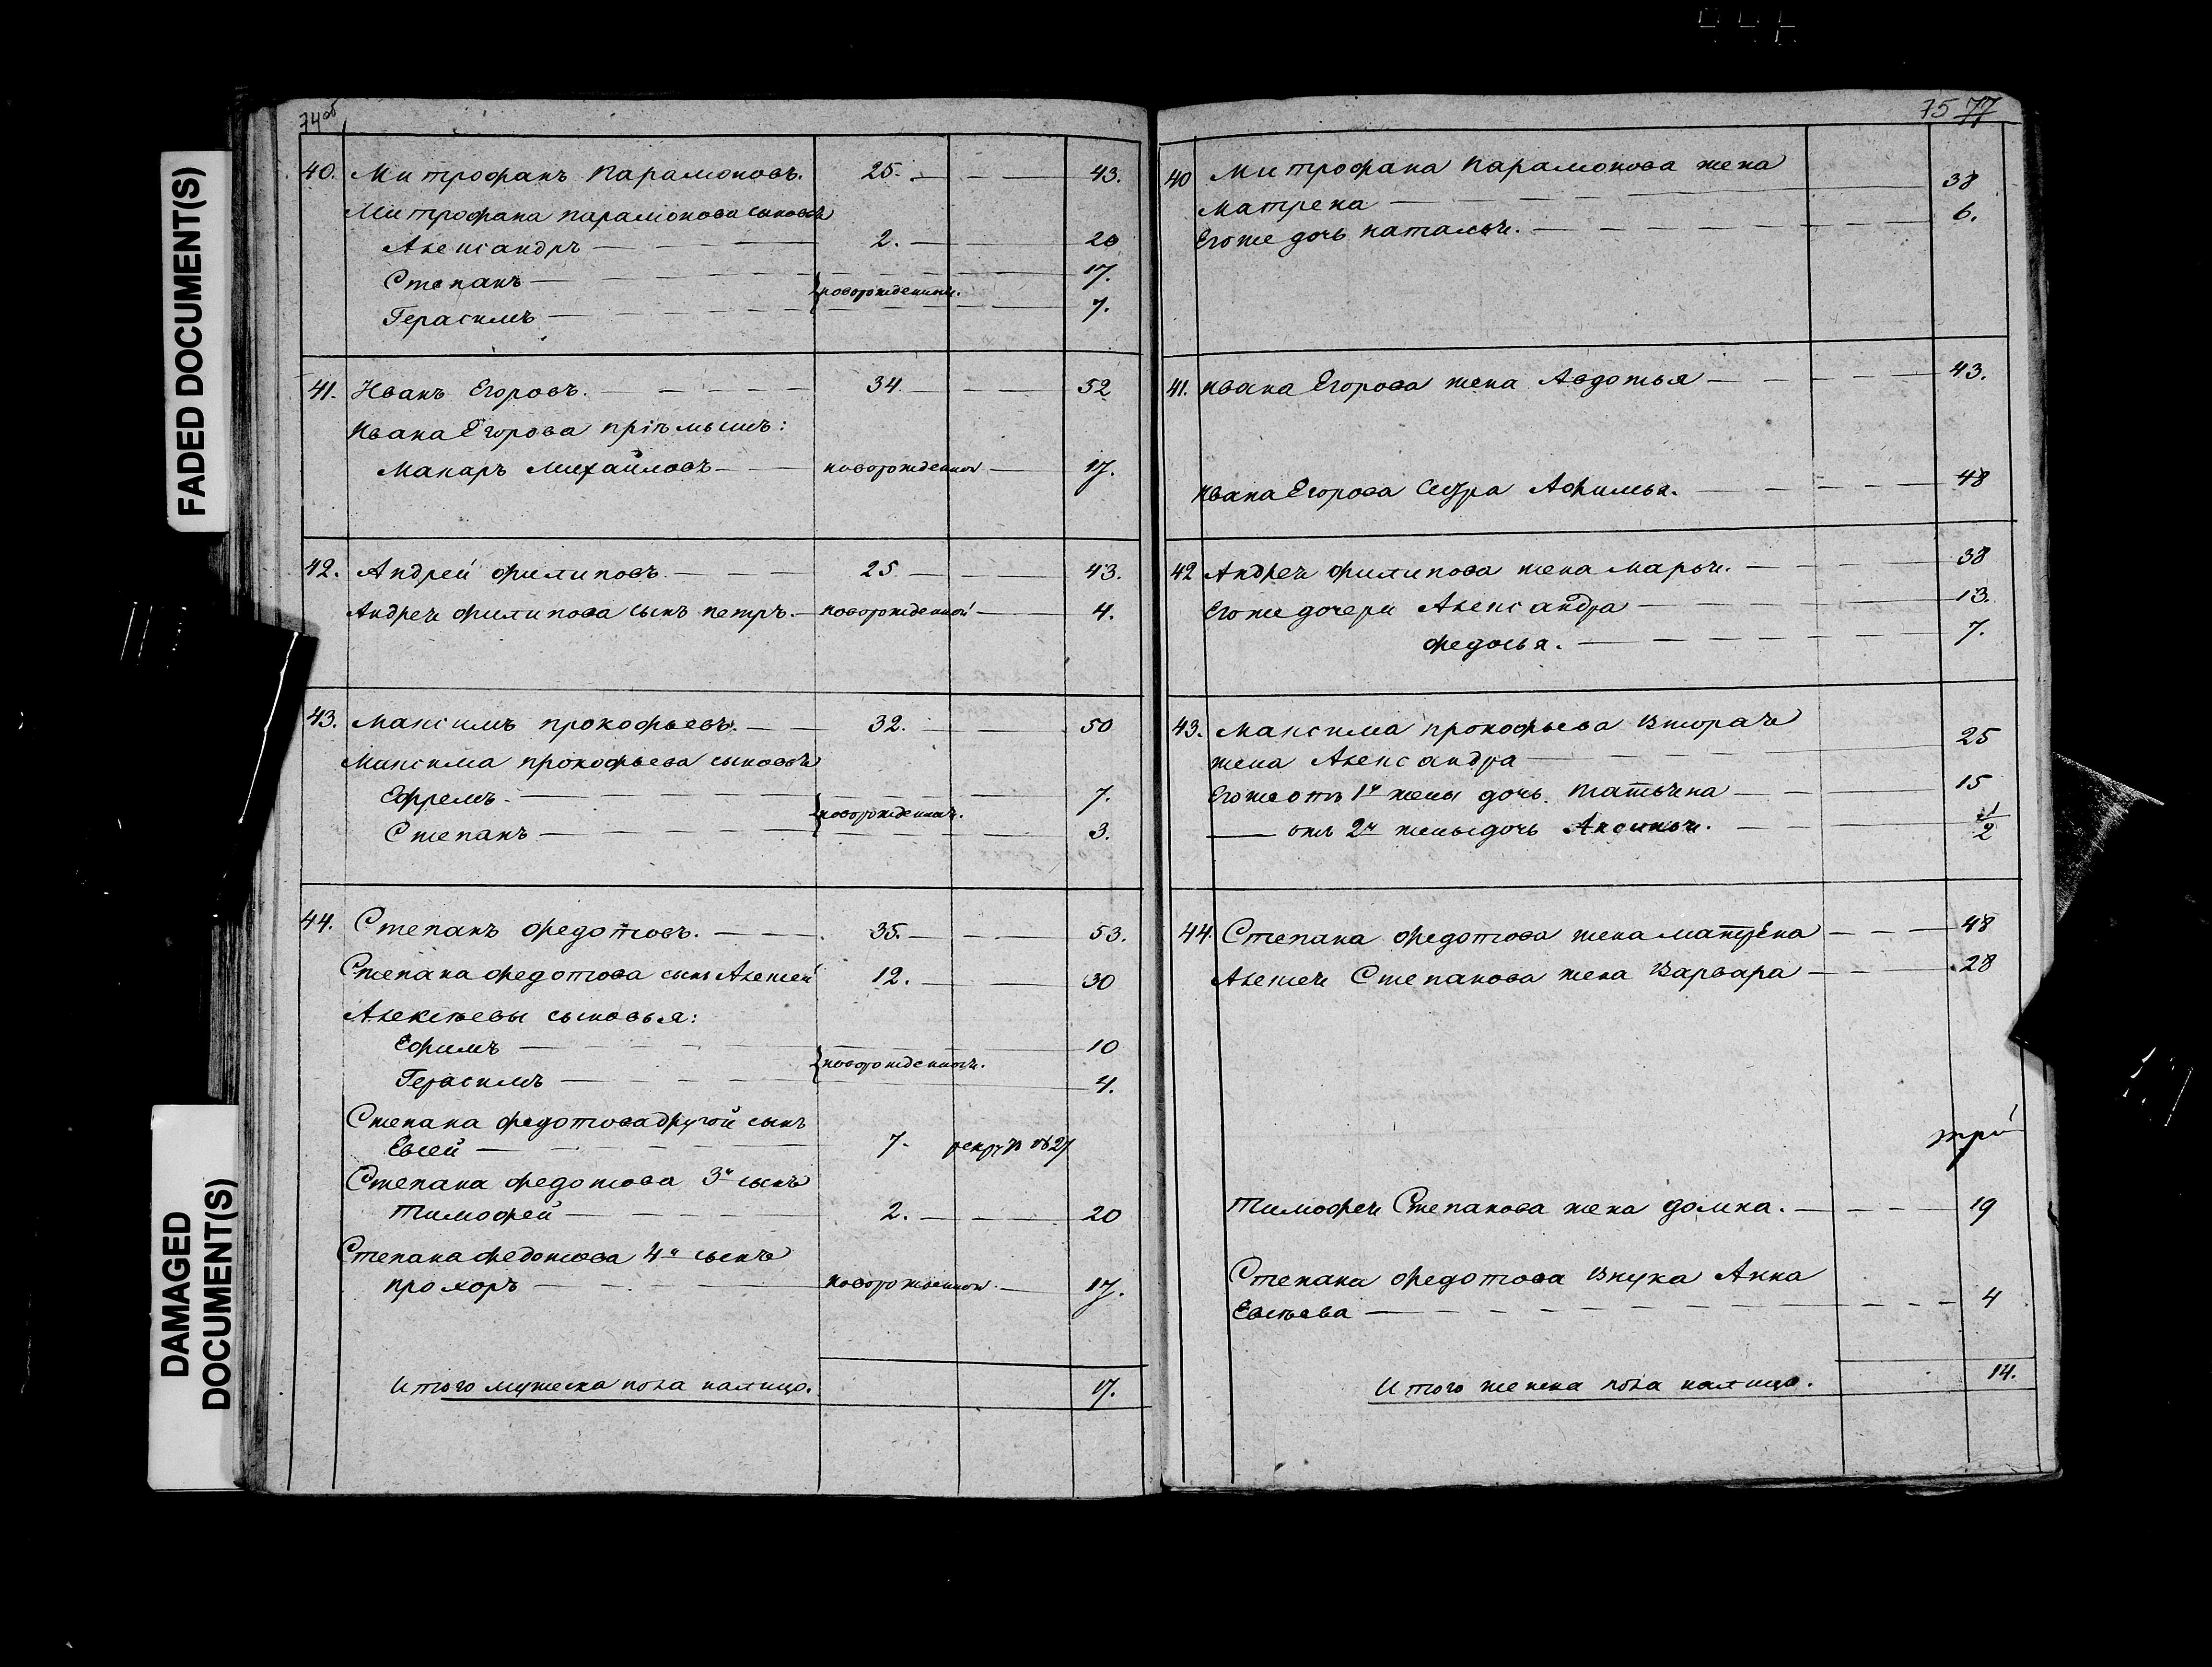 FADED DOCUMENT(S)
DAMAGED DOCUMENT(S)
74об
40. Митрофанъ Парамоновъ. 25. 43.
Митрофана парамонова сыновья
Александръ 2. 20
Степанъ 17.
новорожденныи.
Герасимъ 7.
41. Иванъ Егоровъ. 34. 52
Ивана Егорова пріемышъ:
Макаръ Михайловъ новорожденной 17.
42. Андрей филиповъ 25 43.
Андрея филипова сынъ петръ. новорожденной 4.
43. Максимъ прокофьевъ. 32. 50
Максима прокофьева сыновья
Ефремъ. 7.
новорожденныя.
Степанъ 3.
44. Степанъ федотовъ. 35. 53.
Степана федотова сынъ Алексей 12. 30
Алексѣевы сыновья:
Ефимъ 10
новорожденныя.
Герасимъ 4.
Степана федотова другой сынъ
Евсей 7. рекрутъ въ 27
Степана федотова 3й сынъ
Тимофей 2. 20
Степана федотова 4й сынъ
прохоръ новорожденной. 17.
Итого мужеска пола налицо. 17.
75 77
40 Митрофана Парамонова жена
Матрена 38
Егоже дочь наталья. 6.
41. Ивана Егорова жена Авдотья 43.
Ивана Егорова Сестра Афимья. 48
42 Андрея филипова жена марья. 38
Егоже дочери Александра 13.
федосья. 7.
43. Максима прокофьева Вторая
жена Александра 25
Егоже отъ 1й жены дочь Татьяна 15
отъ 2й жены дочь Аксинья. 1/2
44 Степана федотова жена матрена 48
Алексея Степанова жена Варвара 28
три
Тимофея Степанова жена домна. 19
Степана федотова Внука Анна
Евсѣева 4
Итого женска пола налицо. 14.